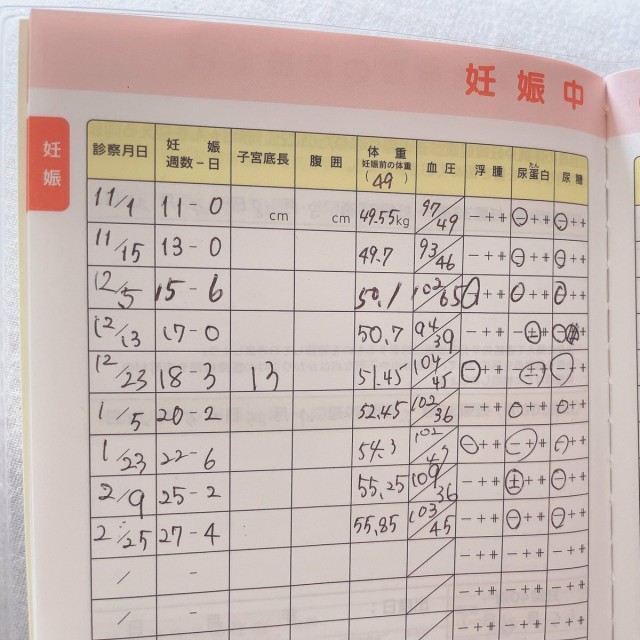 妊娠中
妊娠
診察月日 妊娠週数-日 子宮底長 腹囲 体重 妊娠前の体重 (49) 血圧 浮腫 尿蛋白 たん 尿糖
11/1 11-0 cm cm 49.55kg 97/49 - + ⧺ - + ⧺ - + ⧺
11/15 13-0 49.7 93/46 - + ⧺ - + ⧺ - + ⧺
12/5 15-6 50.1 102/65 - + ⧺ - + ⧺ - + ⧺
12/13 17-0 50.7 94/39 - + ⧺ - ± ⧺ - + ⧺
12/23 18-3 13 51.45 104/45 - + ⧺ - + ⧺ - + ⧺
1/5 20-2 52.45 102/36 - + ⧺ - + ⧺ - + ⧺
1/23 22-6 54.3 102/47 - + ⧺ - + ⧺ - + ⧺
2/9 25-2 55.25 109/36 - + ⧺ ± + ⧺ - + ⧺
2/25 27-4 55.85 103/45 - + ⧺ - + ⧺ - + ⧺
/ - / - + ⧺ - + ⧺ - + ⧺
/ - / - + ⧺ - + ⧺ - + ⧺